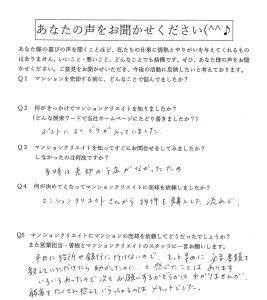 あなたの声をお聞かせください(^^♪
あなた様の喜びの声を聞くことほど、私たちの仕事に情熱とやりがいを与えてくれるもの
はありません。いいこと・悪いこと、どんなことでも結構です。ぜひ、あなた様の声をお聞
かせください。ご意見をお聞かせいただき、今後の活動に反映したいと考えております。
Q1 マンションを売却する前に、どんなことで悩んでましたか?
Q2 何がきっかけでマンションクリエイトを知りましたか?
(どんな検索ワードで当社ホームページにたどり着きましたか?)
ポストによくチラシが入っていました
Q3 マンションクリエイトを知ってすぐにお問合せをしてみましたか?
しなかったのは何故ですか?
当時は売却の予定がなかったため
Q4 何が決めてとなってマンションクリエイトに売却を依頼しましたか?
マンションクリエイトさんから物件を購入した流れで
Q5 マンションクリエイトにマンションの売却を依頼してどうだったでしょうか?
また営業担当・曽根とマンションクリエイトのスタッフに一言お願いします。
平日に役所や銀行に行けないので、もっと早めに必要書類を
教えていただけたら助かったのに、と感じたことはあります
いろいろあったので次もお願いするかどうかはわかりませんが、
顧客をたくさん抱えていらっしゃるのはメリットでした。